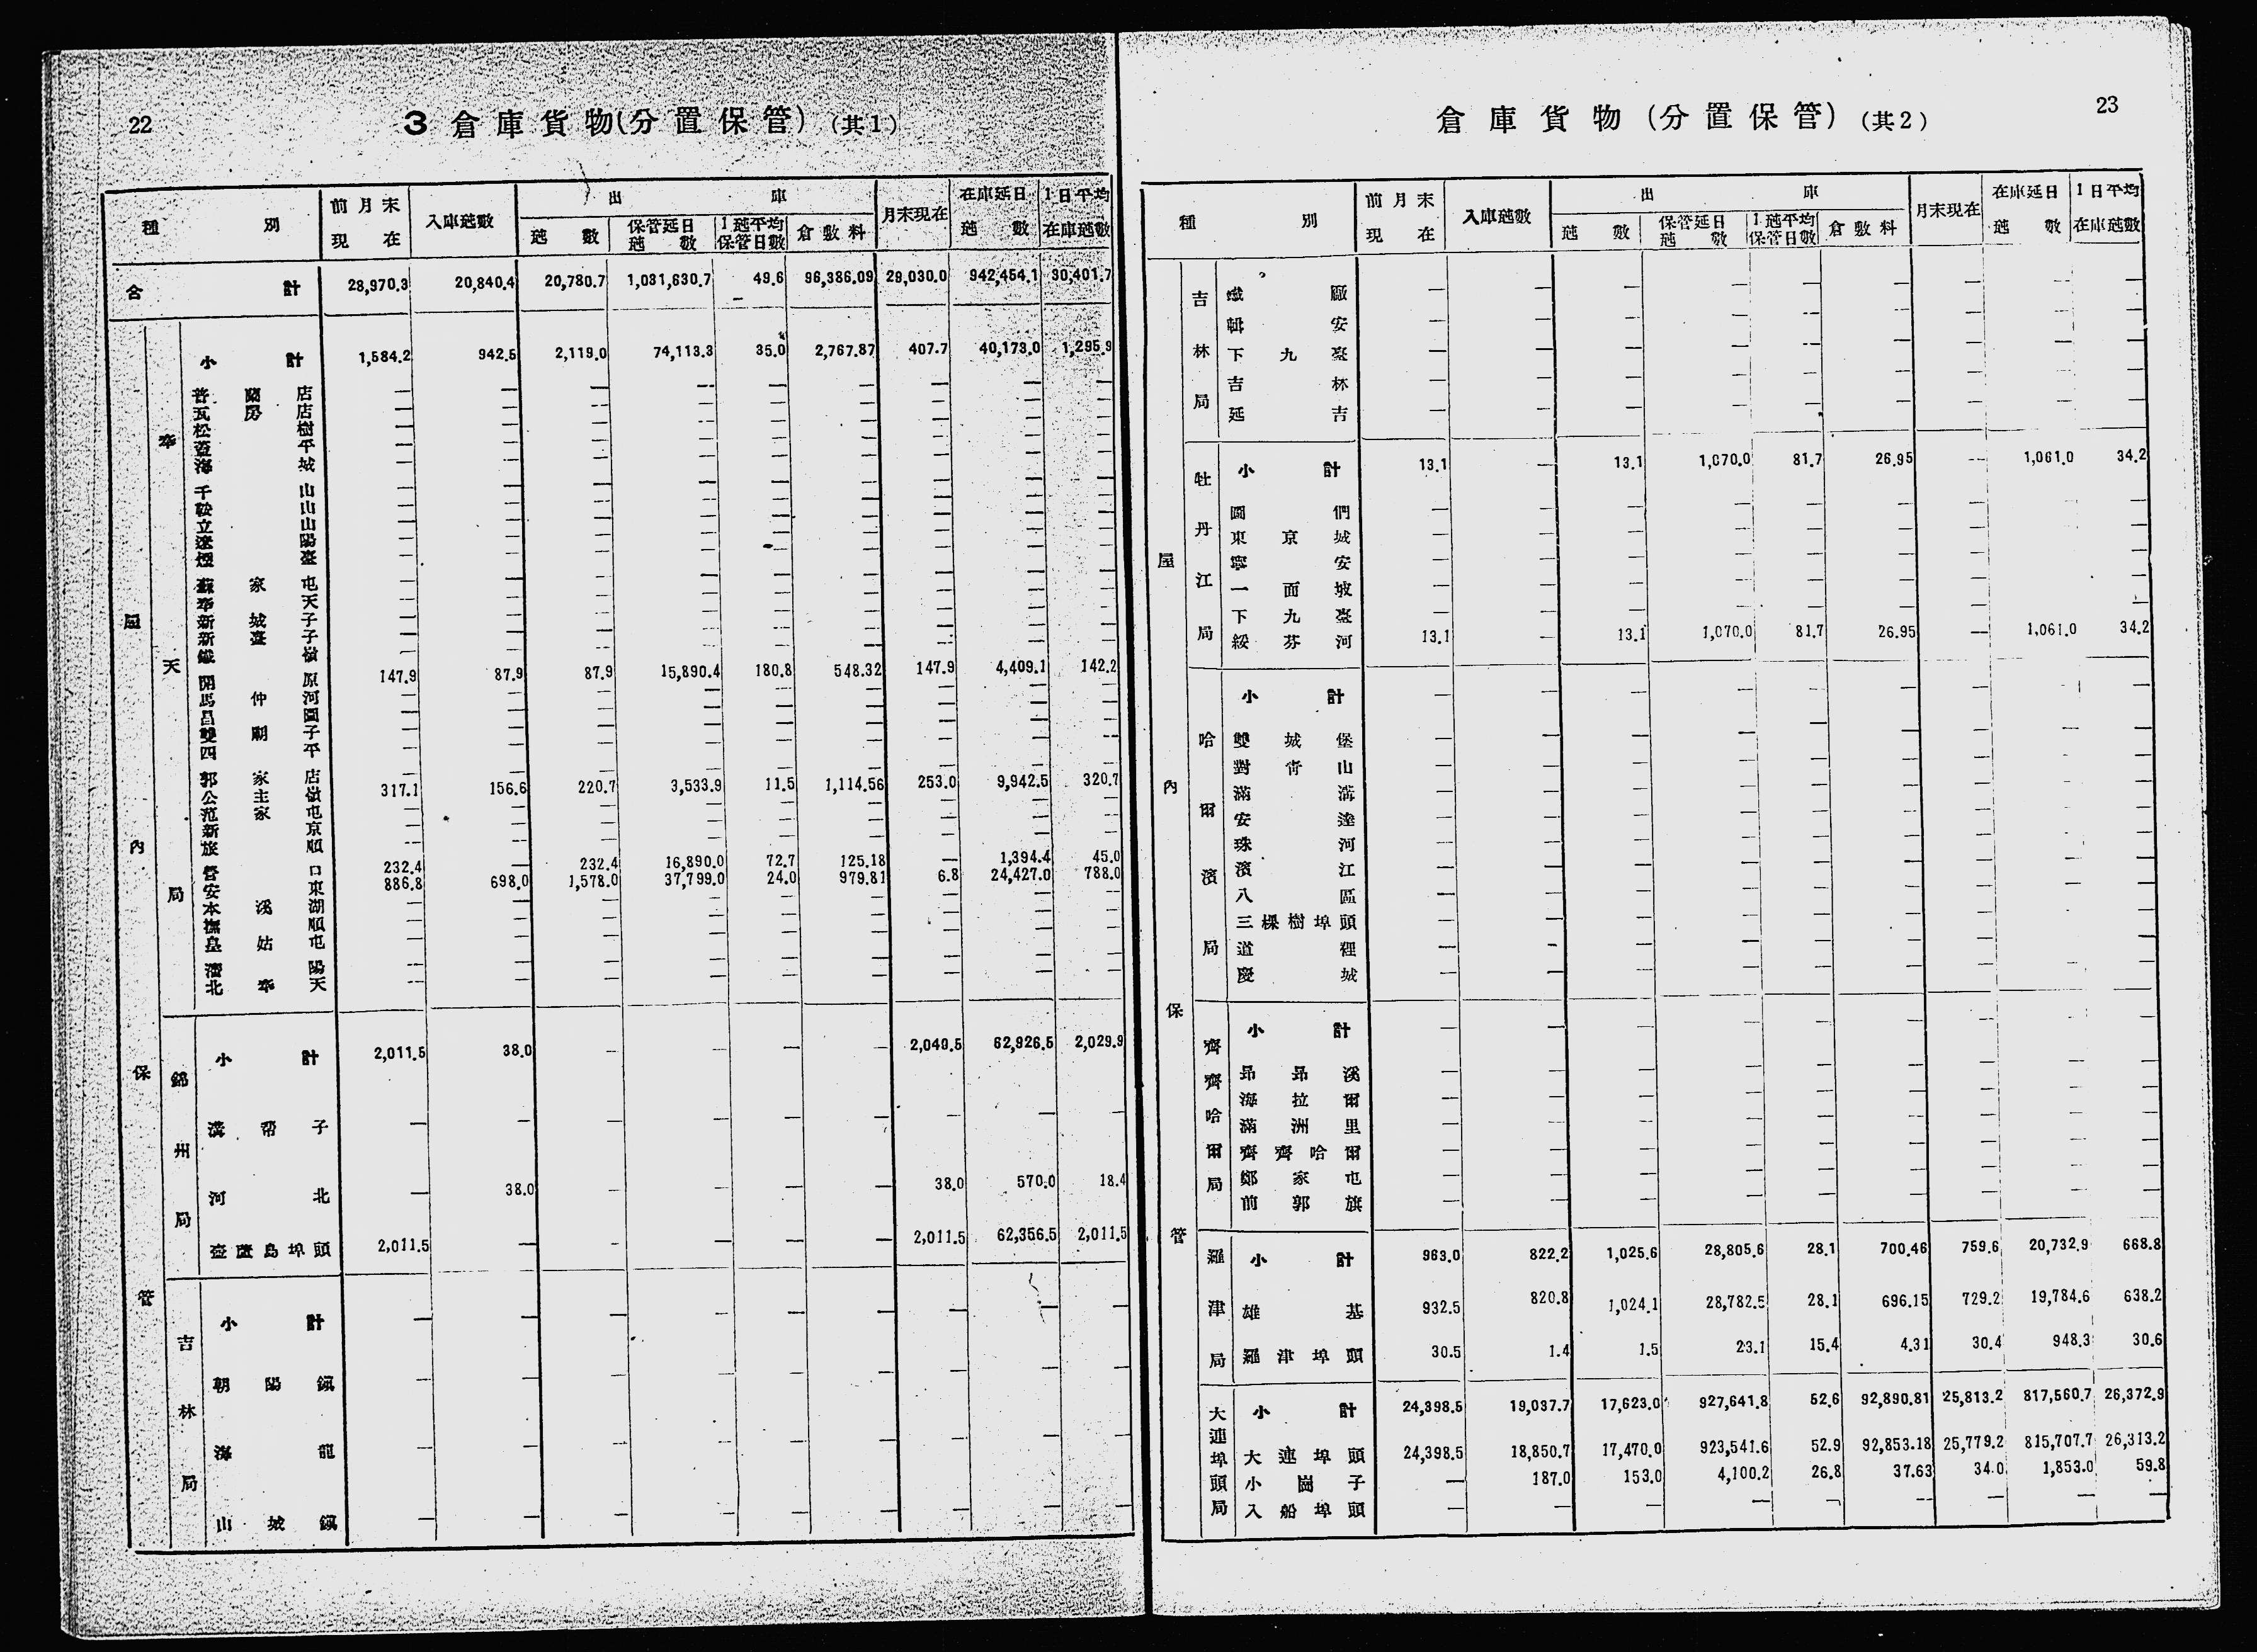 22
3 倉庫貨物(分置保管)(其1)
種別 前月末現在 入庫瓲數 出庫 月末現在 在庫延日瓲數 1日平均在庫瓲數
瓲數 保管延日瓲數 1瓲平均保管日數 倉敷料
合計 28,970.3 20,840.4 20,780.7 1,031,630.7 49.6 96,386.09 29,030.0 942,454.1 30,401.7
屋內保管
奉天局
小計 1,584.2 942.5 2,119.0 74,113.3 35.0 2,767.87 407.7 40,173.0 1,295.9
普蘭店 — — — — — — — — —
瓦房店 — — — — — — — — —
松樹 — — — — — — — — —
蓋平 — — — — — — — — —
海城 — — — — — — — — —
千山 — — — — — — — — —
鞍山 — — — — — — — — —
立山 — — — — — — — — —
遼陽 — — — — — — — — —
煙臺 — — — — — — — — —
蘇家屯 — — — — — — — — —
奉天 — — — — — — — — —
新城子 — — — — — — — — —
新臺子 — — — — — — — — —
鐵嶺 — — — — — — — — —
開原 147.9 87.9 87.9 15,890.4 180.8 548.32 147.9 4,409.1 142.2
馬仲河 — — — — — — — — —
昌圖 — — — — — — — — —
雙廟子 — — — — — — — — —
四平 — — — — — — — — —
郭家店 — — — — — — — — —
公主嶺 317.1 156.6 220.7 3,533.9 11.5 1,114.56 253.0 9,942.5 320.7
范家屯 — — — — — — — — —
新京 — — — — — — — — —
旅順 — — — — — — — — —
營口 232.4 — 232.4 16,890.0 72.7 125.18 — 1,394.4 45.0
安東 886.8 698.0 1,578.0 37,799.0 24.0 979.81 6.8 24,427.0 788.0
本溪湖 — — — — — — — — —
撫順 — — — — — — — — —
皇姑屯 — — — — — — — — —
瀋陽 — — — — — — — — —
北奉天 — — — — — — — — —
錦州局
小計 2,011.5 38.0 — — — — 2,049.5 62,926.5 2,029.9
溝幫子 — — — — — — — — —
河北 — 38.0 — — — — 38.0 570.0 18.4
壺蘆島埠頭 2,011.5 — — — — — 2,011.5 62,356.5 2,011.5
吉林局
小計 — — — — — — — — —
朝陽鎭 — — — — — — — — —
海龍 — — — — — — — — —
山城鎭 — — — — — — — — —
23
倉庫貨物(分置保管)(其2)
種別 前月末現在 入庫瓲數 出庫 月末現在 在庫延日瓲數 1日平均在庫瓲數
瓲數 保管延日瓲數 1瓲平均保管日數 倉敷料
屋內保管
吉林局
鐵廠 — — — — — — — — —
輯安 — — — — — — — — —
下九臺 — — — — — — — — —
吉林 — — — — — — — — —
延吉 — — — — — — — — —
牡丹江局
小計 13.1 — 13.1 1,070.0 81.7 26.95 — 1,061.0 34.2
圖們 — — — — — — — — —
東京城 — — — — — — — — —
寧安 — — — — — — — — —
一面坡 — — — — — — — — —
下九臺 — — — — — — — — —
綏芬河 13.1 — 13.1 1,070.0 81.7 26.95 — 1,061.0 34.2
哈爾濱局
小計 — — — — — — — — —
雙城堡 — — — — — — — — —
對靑山 — — — — — — — — —
滿溝 — — — — — — — — —
安達 — — — — — — — — —
珠河 — — — — — — — — —
濱江 — — — — — — — — —
八區 — — — — — — — — —
三棵樹埠頭 — — — — — — — — —
道裡 — — — — — — — — —
慶城 — — — — — — — — —
齊齊哈爾局
小計 — — — — — — — — —
昂昂溪 — — — — — — — — —
海拉爾 — — — — — — — — —
滿洲里 — — — — — — — — —
齊齊哈爾 — — — — — — — — —
鄭家屯 — — — — — — — — —
前郭旗 — — — — — — — — —
羅津局
小計 963.0 822.2 1,025.6 28,805.6 28.1 700.46 759.6 20,732.9 668.8
雄基 932.5 820.8 1,024.1 28,782.5 28.1 696.15 729.2 19,784.6 638.2
羅津埠頭 30.5 1.4 1.5 23.1 15.4 4.31 30.4 948.3 30.6
大連埠頭局
小計 24,398.5 19,037.7 17,623.0 927,641.8 52.6 92,890.81 25,813.2 817,560.7 26,372.9
大連埠頭 24,398.5 18,850.7 17,470.0 923,541.6 52.9 92,853.18 25,779.2 815,707.7 26,313.2
小崗子 — 187.0 153.0 4,100.2 26.8 37.63 34.0 1,853.0 59.8
入船埠頭 — — — — — — — — —